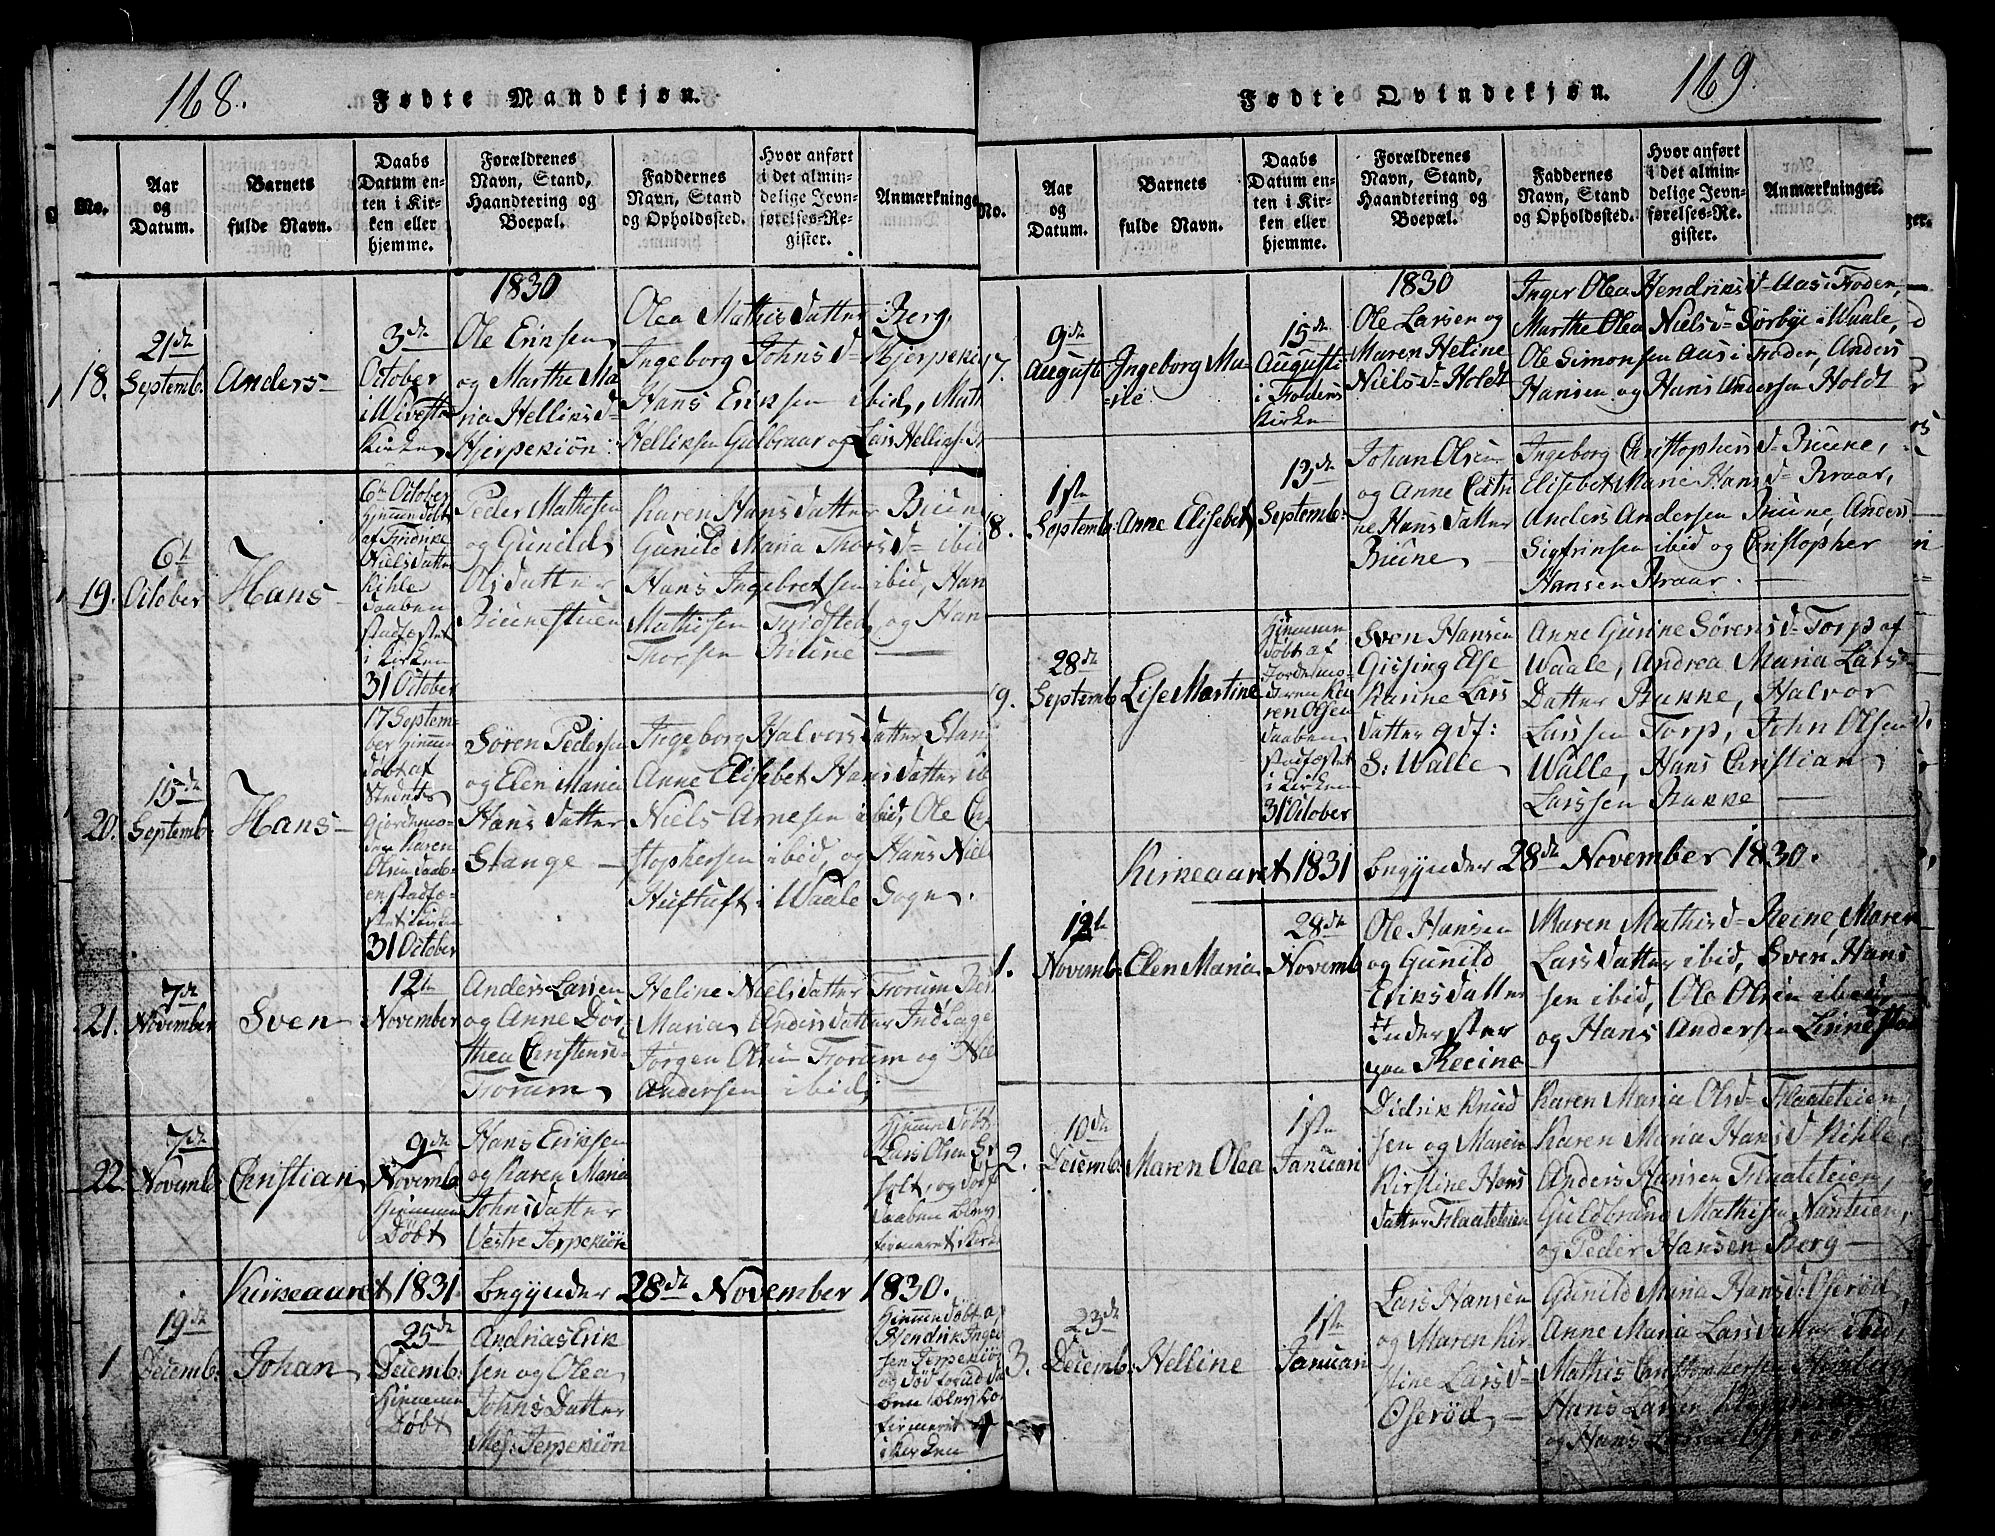 168.
Fødte Mandkjøn.
No.
Aar
og
Datum.
Barnets
fulde Navn.
Daabs
Datum en-
ten i Kir-
ken eller
hjemme.
Forældrenes
Navn, Stand,
Haandtering og
Boepæl.
Faddernes
Navn, Stand
og Opholdssted.
Hvor anført
i det almin-
delige Jevn-
førelses-Re-
gister.
Anmærkninge
1830
18.
21de
Septemb:
Anders
3de
October
i Wivestad
Kirke
Ole Eriksen
og Marthe Ma
ria Helliksd=
Hjerpekiøn
Olea Mathisdatter Berg,
Ingeborg Johnsd= Hjerpeki
Hans Eriksen ibid, Math
Helliksen Gulbraar og Lars Helliks
19.
6te
October
Hans
6te October
Hjemmedøbt
af
Nielsdatter
Kihle
Daaben
stadfæstet
i Kirken
31 October
Peder Mathesen
og Gunild
Olsdatter
Brunestuen
Karen Hansdatter Brune
Gunild Maria Thorsd= ibid
Hans Ingebretsen ibid, Han
Mathisen og Han
Thorsen Brune
20.
15de
Septemb:
Hans
17 Septem-
ber hjemme
døbt af
Gjordemo-
der Karen
Olsen Daab-
en stadfæ-
stet i Kirken
31 October
Søren Pedersen
og Elen Maria
Hansdatter
Stange
Ingeborg Halvorsdatter Stang
Anne Elisebet Hansdatter ib
Niels Arnesen ibid, Ole Chr
stophersen ibid, og Hans Niel
Huftuft i Waale Sogn.
21.
7de
November
Sven
12te
November
Anders Larsen
og Anne Dor
thea Christensd=
Frorum
Heline Nielsdatter Frorum
Maria Andersdatter Indlage
Jørgen Olsen Frorum og Nie
Andersen ibid,
22
7de
Novemb:
Christian
9de
Novemb
Hjemme
Døbt
Hans Eriksen
og Karen Maria
Johnsdatter
Vestre Jerpekiøn
Hjemmedøbt
Lars Olsen
holt, og død
Daaben blev
firmeret i Kirke
Kirkeaaret 1831 begynder 28de November 1830.
1
19de
Decemb:
Johan
25de
Decemb:
Hjemme
Døbt
Andrias Erik
sen og Olea
Johns Datter
Mel: Jerpekiøn
Hjemmedøbt a
Hendrik Inge
sen Jerpekiøn
og Død forud Da
ben blev Co
firmeret
i Kirken
169.
Fødte Qvindekjøn.
No.
Aar
og
Datum.
Barnets
fulde Navn.
Daabs
Datum en-
ten i Kir-
ken eller
hjemme.
Forældrenes
Navn, Stand,
Haandtering og
Boepæl.
Faddernes
Navn, Stand
og Opholdssted.
Hvor anført
i det almin-
delige Jevn-
førelses-Re-
gister.
Anmærkninger.
1830
7.
9de
August
Ingeborg Ma-
rie
15de
August
i Fodens
Kirke
Ole Larsen og
Maren Heline
Nielsd= Holdt
Inger Olea Hendriksd= Aas i Foden,
Marthe Olea Nielsd= Sørbye i Waale,
Ole Simonsen Aas i Foden, Anders
Hansen og Hans Andersen Holdt
8.
1ste
Septemb:
Anne Elisebet
13de
Septemb:
Johan Olsen
og Anne Cathri
ne Hansdatter
Brune
Ingeborg Christophersd= Brune,
Elisebet Marie Hansd= Kraar,
Anders Andersen Brune, Anders
Sigfrinsen ibid og Christopher
Hansen Kraar.
9.
28de
Septemb
Lise Martine
Hjemme
døbt af
Jordemo-
deren Ka-
ren Olsen
Daaben
stadfæstet
i Kirken
31 October
Sven Hansen
Gissing Else
Karine Lars
datter gdf:
S: Walle
Anne Gurine Sørensd= Torp af
Waale, Andrea Maria Lars
Datter Bakke, Halvor
Larssen Torp, John Olsen
Walle, Hans Christian
Larssen Bakke
Kirkeaaret 1831 begynder 28de November 1830.
1.
12te
Novemb:
Elen Maria
28de
Novemb
Ole Hansen
og Gunild
Eriksdatter
Inderster
paa Reine
Maren Mathisd= Reine, Maren
Larsdatter ibid, Sven Hans
sen ibid, Ole Olsen ibid,
og Hans Andersen Linnestad
2.
10de
Decemb:
Maren Olea
1ste
Januari
Didrik Knud
sen og Maren
Kirstine Hans
datter Flaateteien
Karen Maria Olsd= Flaateteien,
Karen Maria Hansd= Kihle,
Anders Hansen Flaateteien,
Guldbrand Mathisen Nanteien,
og Peder Hansen Berg
3.
23de
Decemb:
Helline
1ste
Januari
Lars Hansen
og Maren Kir-
stine Larsd=
Oserød
Gunild Maria Hansd: Oserød,
Anne Maria Larsdatter ibid,
Mathis Christophersen
Hans Larsen
og Hans